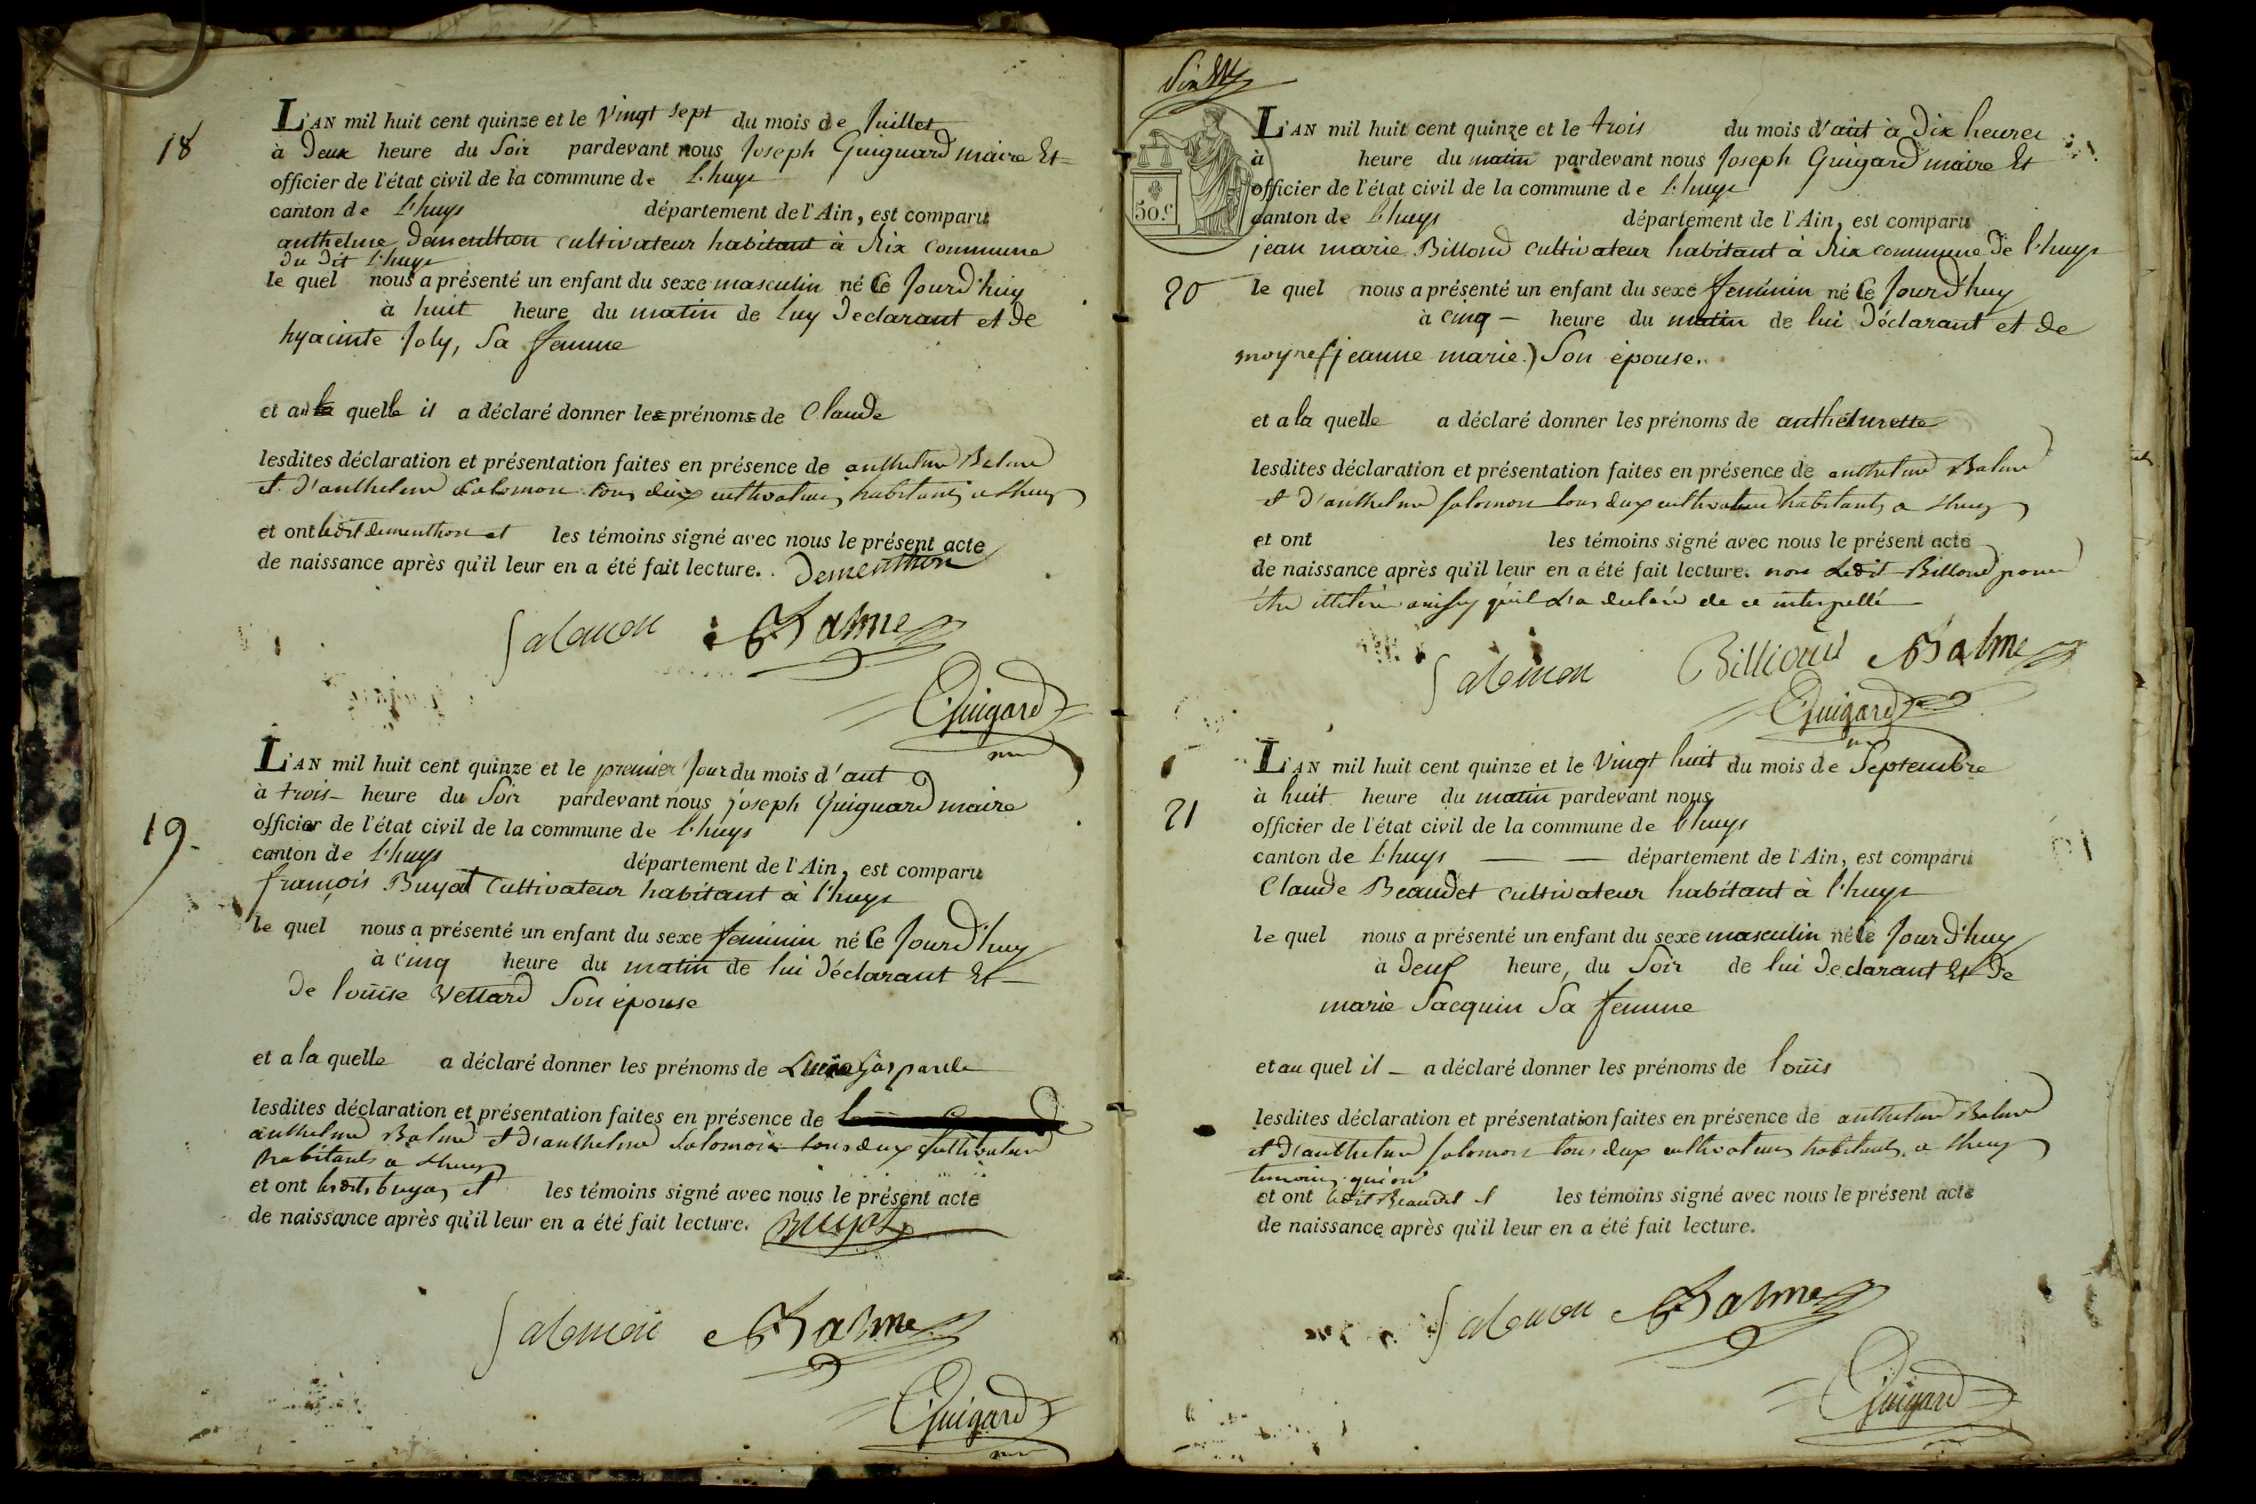 18
L'AN mil huit cent quinze et le vingt sept du mois de Juillet
à Deux heure du Soir pardevant nous Joseph Guiguard maire Et
officier de l'état civil de la commune de l'huys
canton de l'huys département de l'Ain, est comparu
anthelme Dementhon cultivateur habitant à Rix commune
du dit l'huys
le quel nous a présenté un enfant du sexe masculin né Ce Jourd'huy
à huit heure du matin de luy Declarant et de
hyacinte Joly, Sa femme
et au quel il a déclaré donner les prénoms de Claude
lesdites déclaration et présentation faites en présence de anthelme Balme
et d'anthelme Salomon tous deux cultivateurs habitants a Lhuys
et ont ledit dementhon et les témoins signé avec nous le présent acte
de naissance après qu'il leur en a été fait lecture. Dementhon
Salomon Balme
Guigard
19.
L'AN mil huit cent quinze et le premier Jour du mois d'aut
à trois heure du Soir pardevant nous joseph Guiguard maire
officier de l'état civil de la commune de l'huys
canton de l'huys département de l'Ain, est comparu
françois Buyat Cultivateur habitant à l'huys
le quel nous a présenté un enfant du sexe feminin né Ce Jourd'huy
à cinq heure du matin de lui Déclarant Et
De louise Vettard Son épouse
et a la quelle a déclaré donner les prénoms de Gasparde
lesdites déclaration et présentation faites en présence de
anthelme Balme et d'anthelme Salomon tous deux Cultivateurs
habitants a Lhuys
et ont et les témoins signé avec nous le présent acte
de naissance après qu'il leur en a été fait lecture. Buyat
Salomon Balme
Guigard
50.c
L'AN mil huit cent quinze et le trois du mois d'aût à Dix heures
à heure du matin pardevant nous Joseph Guigard maire Et
officier de l'état civil de la commune de l'huys
canton de l'huys département de l'Ain, est comparu
jean marie Billoud cultivateur habitant à Rix commune De l'huys
20
le quel nous a présenté un enfant du sexe feminin né Ce Jourd'huy
à cinq — heure du matin de lui Déclarant et de
moyne (jeanne marie) Son épouse.
et a la quelle a déclaré donner les prénoms de anthelmette
lesdites déclaration et présentation faites en présence de anthelme Balme
et D'anthelme Salomon tous deux cultivateurs habitants a Lhuys
et ont les témoins signé avec nous le présent acte
de naissance après qu'il leur en a été fait lecture. non Ledit Billoud pour
être ainsy qu'il l'a declaré de ce interpellé
Salomon Billioud Balme
Guigard
21
L'AN mil huit cent quinze et le Vingt huit du mois de Septembre
à huit heure du matin pardevant nous
officier de l'état civil de la commune de l'huys
canton de l'huys — — département de l'Ain, est comparu
Claude Beaudet cultivateur habitant à l'huys
le quel nous a présenté un enfant du sexe masculin né Ce Jourd'huy
à Deux heure, du Soir de lui Declarant Et De
marie Sacquin Sa femme
et au quel il — a déclaré donner les prénoms de louis
lesdites déclaration et présentation faites en présence de anthelme Balme
et D'anthelme Salomon tous deux cultivateurs habitants a Lhuys
temoins qui on
et ont ledit Beaudet et les témoins signé avec nous le présent acte
de naissance après qu'il leur en a été fait lecture.
Salomon Balme
Guigard